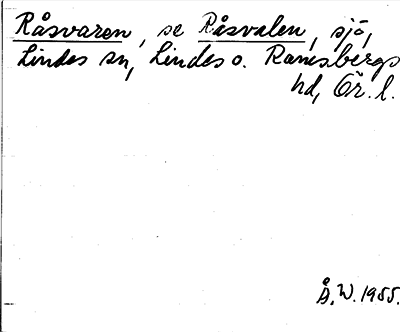 Råsvaren, se Råsvalen, sjö,
Lindes sn, Lindes o. Ramsbergs
hd, Ör. l.
Å.W. 1955.